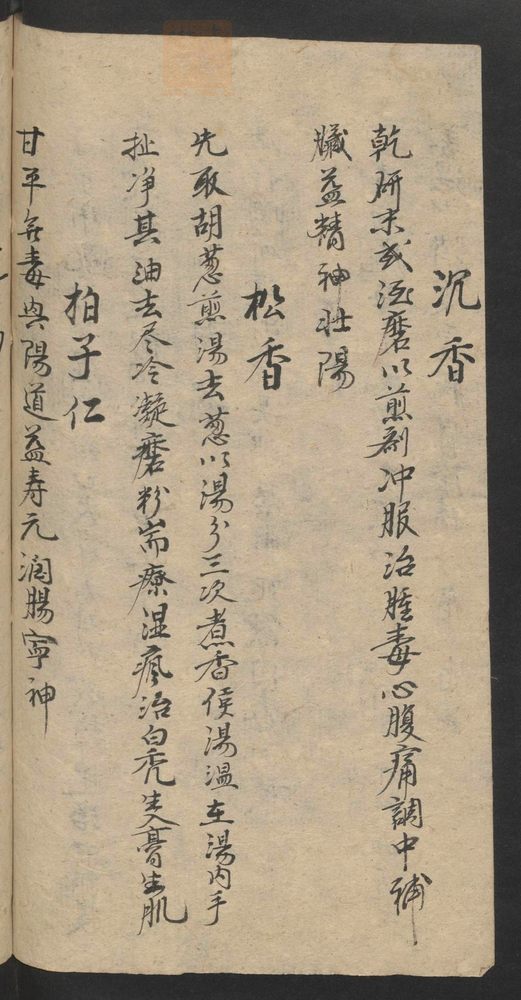 沉香
乾研末或酒磨以煎劑冲服治腫毒心腹痛調中補
臟益精神壯陽
松香
先取胡葱煎湯去葱以湯分三次煮香侯湯温在湯内手
扯净其油去尽冷凝磨粉耑療湿瘋治白秃生肌
柏子仁
甘平無毒興陽道益寿元润腸寧神